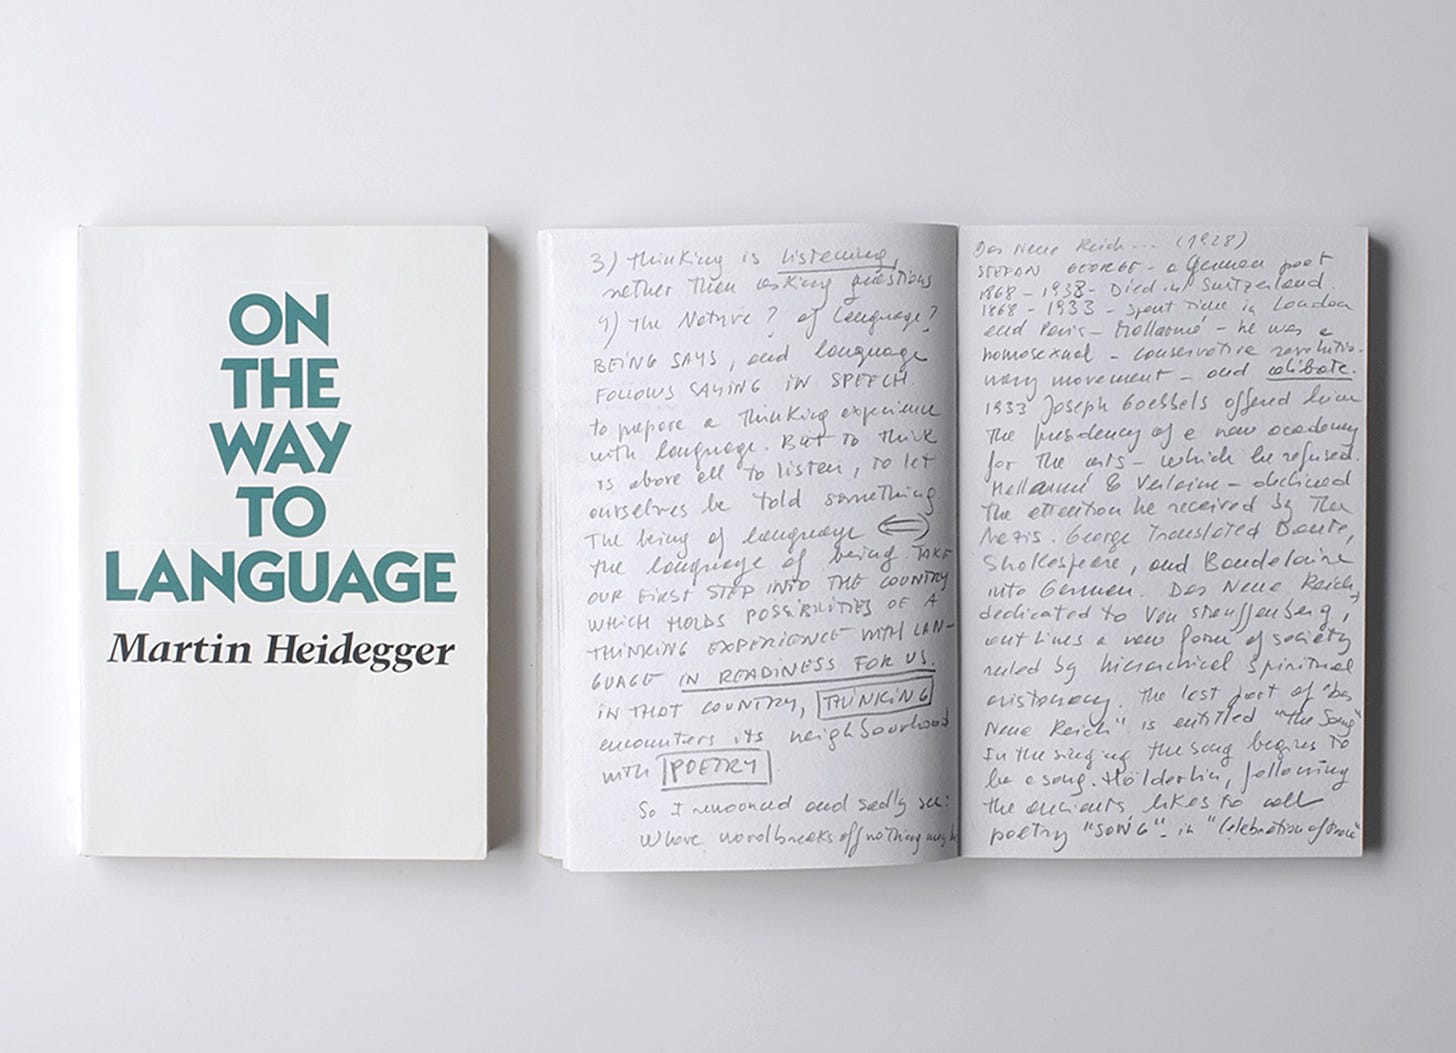 ON
THE
WAY
TO
LANGUAGE
Martin Heidegger
3) Thinking is listening,
rether then asking questions
4) The Nature? of Language?
BEING SAYS, and language
FOLLOWS SAYING IN SPEECH.
to prepare a thinking experience
with language. But to think
is above all to listen, to let
ourselves be told something.
The being of language ⟺
the language of being. TAKE
OUR FIRST STEP INTO THE COUNTRY
WHICH HOLDS POSSIBILITIES OF A
THINKING EXPERIENCE WITH LAN-
GUAGE IN READINESS FOR US.
IN THAT COUNTRY, THINKING
encounters its neighbourhood
with POETRY
So I renounced and sadly see:
Where word breaks off nothing may be
Das Neue Reich --- (1928)
STEFAN GEORGE - a German poet
1868 - 1938 - Died in Switzerland.
1868 - 1933 - spent time in London
and Paris - Mallarmé - he was a
homosexual - conservative revolutio-
nary movement - and celibate.
1933 Joseph Goebbels offered him
the presidency of a new academy
for the arts - which he refused.
Mallarmé & Verlaine - declined
the attention he received by the
Nazis. George translated Dante,
Shakespeare, and Baudelaire
into German. Das Neue Reich,
dedicated to Von Stauffenberg,
outlines a new form of society
ruled by hierarchical spiritual
aristocracy. The last part of "Das
Neue Reich" is entitled "The Song"
In the singing the song begins to
be a song. Hölderlin, following
the ancients likes to call
poetry "SONG" - in "Celebration of Peace"